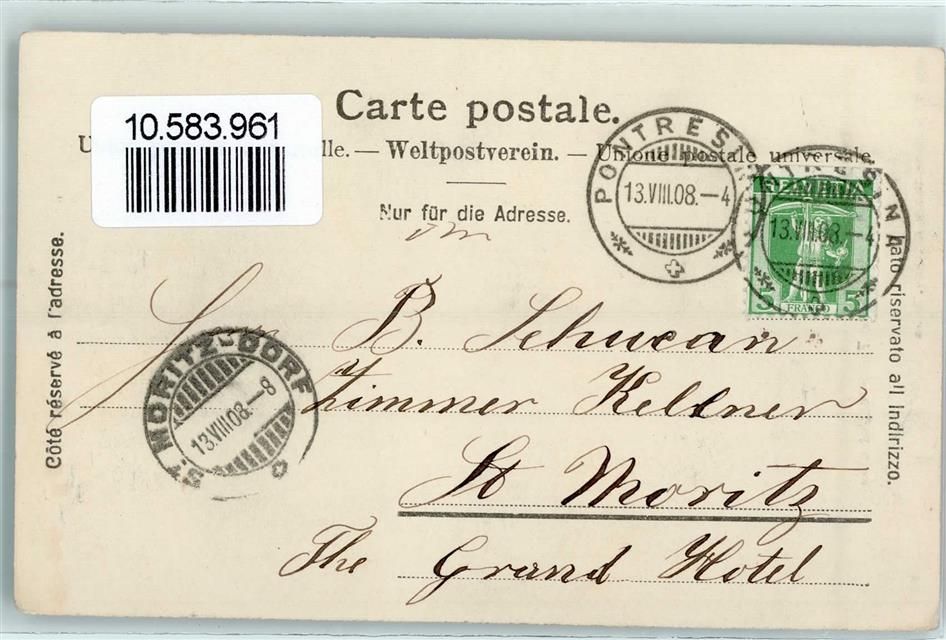 10.583.961
Carte postale.
U lle. — Weltpostverein. — Unione postale universale.
Nur für die Adresse.
Côté réservé à l'adresse.
lato riservato all indirizzo.
PONTRESINA
13.VIII.08.–4
PONTRESINA
13.VIII.08.–4
HELVETIA
5 FRANCO 5
ST MORITZ-DORF
13.VIII.08.–8
B. Schwean
Zimmer Kellner
St Moritz
The Grand Hotel